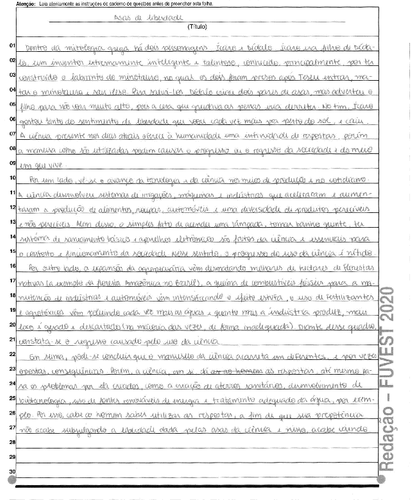 Atenção: Leia atentamente as instruções do caderno de questões antes de preencher esta folha.
Asas de liberdade
(Título)
01 Dentro da mitologia grega há dois personagens Ícaro e Dédalo. Ícaro era filho de Déda-
02 lo, um inventor extremamente inteligente e talentoso, conhecido principalmente por ter
03 construído o labirinto do minotauro, no qual os dois foram presos após Teseu entrar, ma-
04 tar o minotauro e sair ileso. Para salvá-los, Dédalo criou dois pares de asas, mas advertiu o
05 filho para não voar muito alto, pois a cera que grudava as penas
06 gostou tanto do sentimento de liberdade que voou cada vez mais por perto do sol, e caiu.
07 A ciência presente nos dias atuais oferece à humanidade uma infinidade de respostas, porém
08 a maneira como são utilizadas podem causar o progresso ou o regresso da sociedade e do meio
09 em que vive.
10 Por um lado, vê-se o avanço da tecnologia e da ciência nos meios de produção e no cotidiano.
11 A ciência desenvolveu sistemas de irrigação, máquinas e indústrias que aceleraram e aumen-
12 taram a produção de alimentos, roupas, automóveis e uma diversidade de produtos perecíveis
13 e não-perecíveis. Além disso, o simples fato de acender uma lâmpada, tomar banho quente, ter
14 sistemas de saneamento básico e aparelhos eletrônicos são frutos da ciência e essenciais para
15 o conforto e funcionamento da sociedade. Nesse sentido, o progresso do uso da ciência é nítido.
16 Por outro lado, a expansão da agropecuária vem desmatando milhares de hectares de florestas
17 nativas (a exemplo da Floresta Amazônica no Brasil), a queima de combustíveis fósseis para a ma-
18 nutenção de indústrias e automóveis vem intensificando o efeito estufa, o uso de fertilizantes
19 e agrotóxicos vem poluindo cada vez mais as águas e quanto mais a indústria produz, mais
20 lixo é gerado e descartado (na maioria das vezes, de forma inadequada). Diante desse quadro,
21 constata-se o regresso causado pelo uso da ciência.
22 Em suma, pode-se concluir que o manuseio da ciência acarreta em diferentes, e por vezes
23 opostas, consequências. Porém, a ciência, em si, dá as respostas, até mesmo pa-
24 ra os problemas por ela criados, como a criação de aterros sanitários, desenvolvimento de
25 biotecnologia, uso de fontes renováveis de energia e tratamento adequado da água, por exem-
26 plo. Por isso, cabe ao homem saber utilizar as respostas, a fim de que sua prepotência
27 não acabe subjugando a liberdade dada pelas asas da ciência e nisso, acabe caindo.
28
29
30
Redação – FUVEST 2020